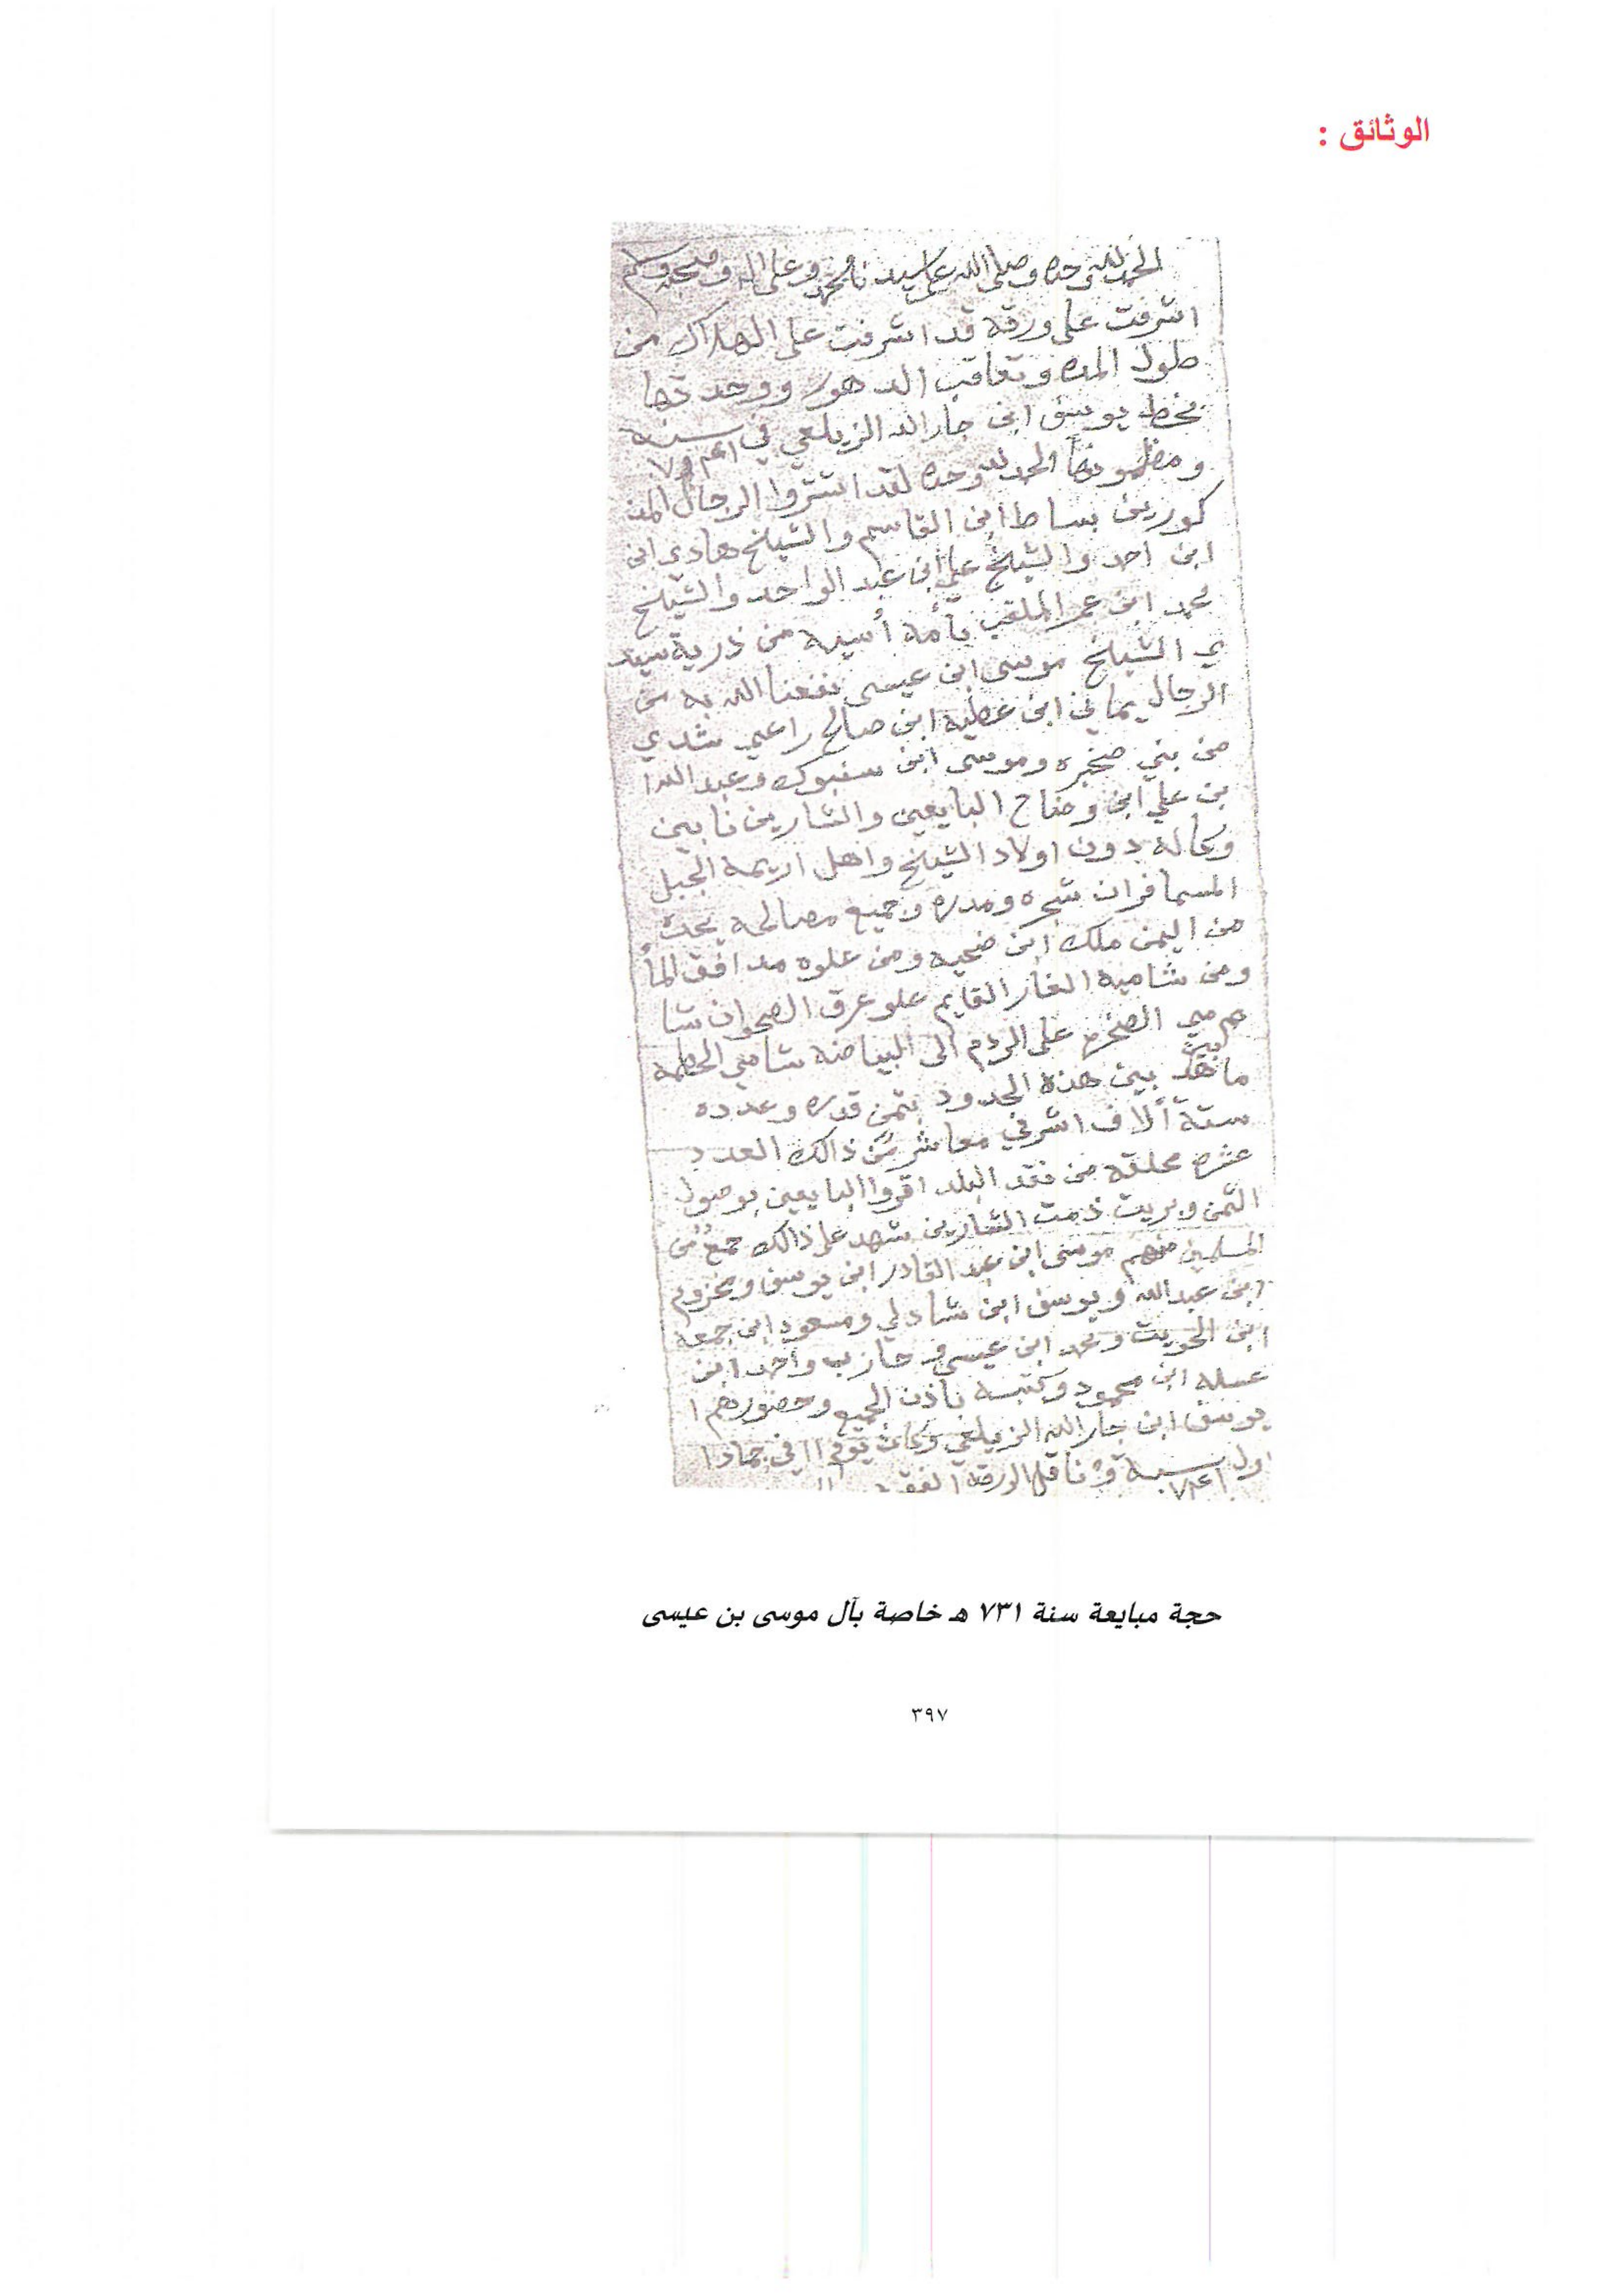 الوثائق :
الحمد لله وحده وصلى الله على سيدنا محمد وعلى اله وصحبه وسلم
اشرفت على ورقه قد اشرفت على الهلاك من
طول المده وتعاقب الدهور ووجدتها
بخط يوسف ابن جار الله الزيلعي في سنه
ومظمونها الحمد لله وحده لقد اشتروا الرجال المذ
كورين بساط ابن القاسم والشيخ هادي ابن
ابن احمد والشيخ علي ابن عبد الواحد والشيخ
محمد ابن عمر الملقب بأمه أسيه من ذرية سيد
ي الشيخ موسى ابن عيسى نفعنا الله به من
الرجال يماني ابن عطيه ابن صالح راعي شدي
من بني صخره وموسى ابن سنبوك وعبد الله ا
بن علي ابن وضاح البايعين والشارين نا بين
وكاله دون اولاد الشيخ واهل اريمه الجبل
المسما فران شجره ومدره وجميع مصالحه يحده
من اليمن ملك ابن ضحيه ومن علوه مدافق الما
ومن شاميه الغار القايم علو عرق الصحوان شا
مي الصخره على الردم الى البياضه شامي الحطمه
ما بين هذه الحدود بثمن قدره وعدده
ستة ألاف اشرفي معاشر من ذالك العدد
عشره محلقه من نقد البلد اقروا البايعين بوصول
الثمن وبريت ذمت الشارين شهد على ذالك جمع من
المسلمين منهم موسى ابن عبد القادر ابن يوسف ومخزوم
ابن عبدالله ويوسف ابن شادلي ومسعود ابن جمعه
ابن الحويت ومحمد ابن عيسى و حازب واحمد ابن
عسله ابن محمود وكتبه باذن الجميع وحضورهم
يوسف ابن جار الله الزيلعي وكان في جمادا
اول سنة ٧٣١ ناقل الورقه الفقير
حجة مبايعة سنة ٧٣١ هـ خاصة بآل موسى بن عيسى
٣٩٧